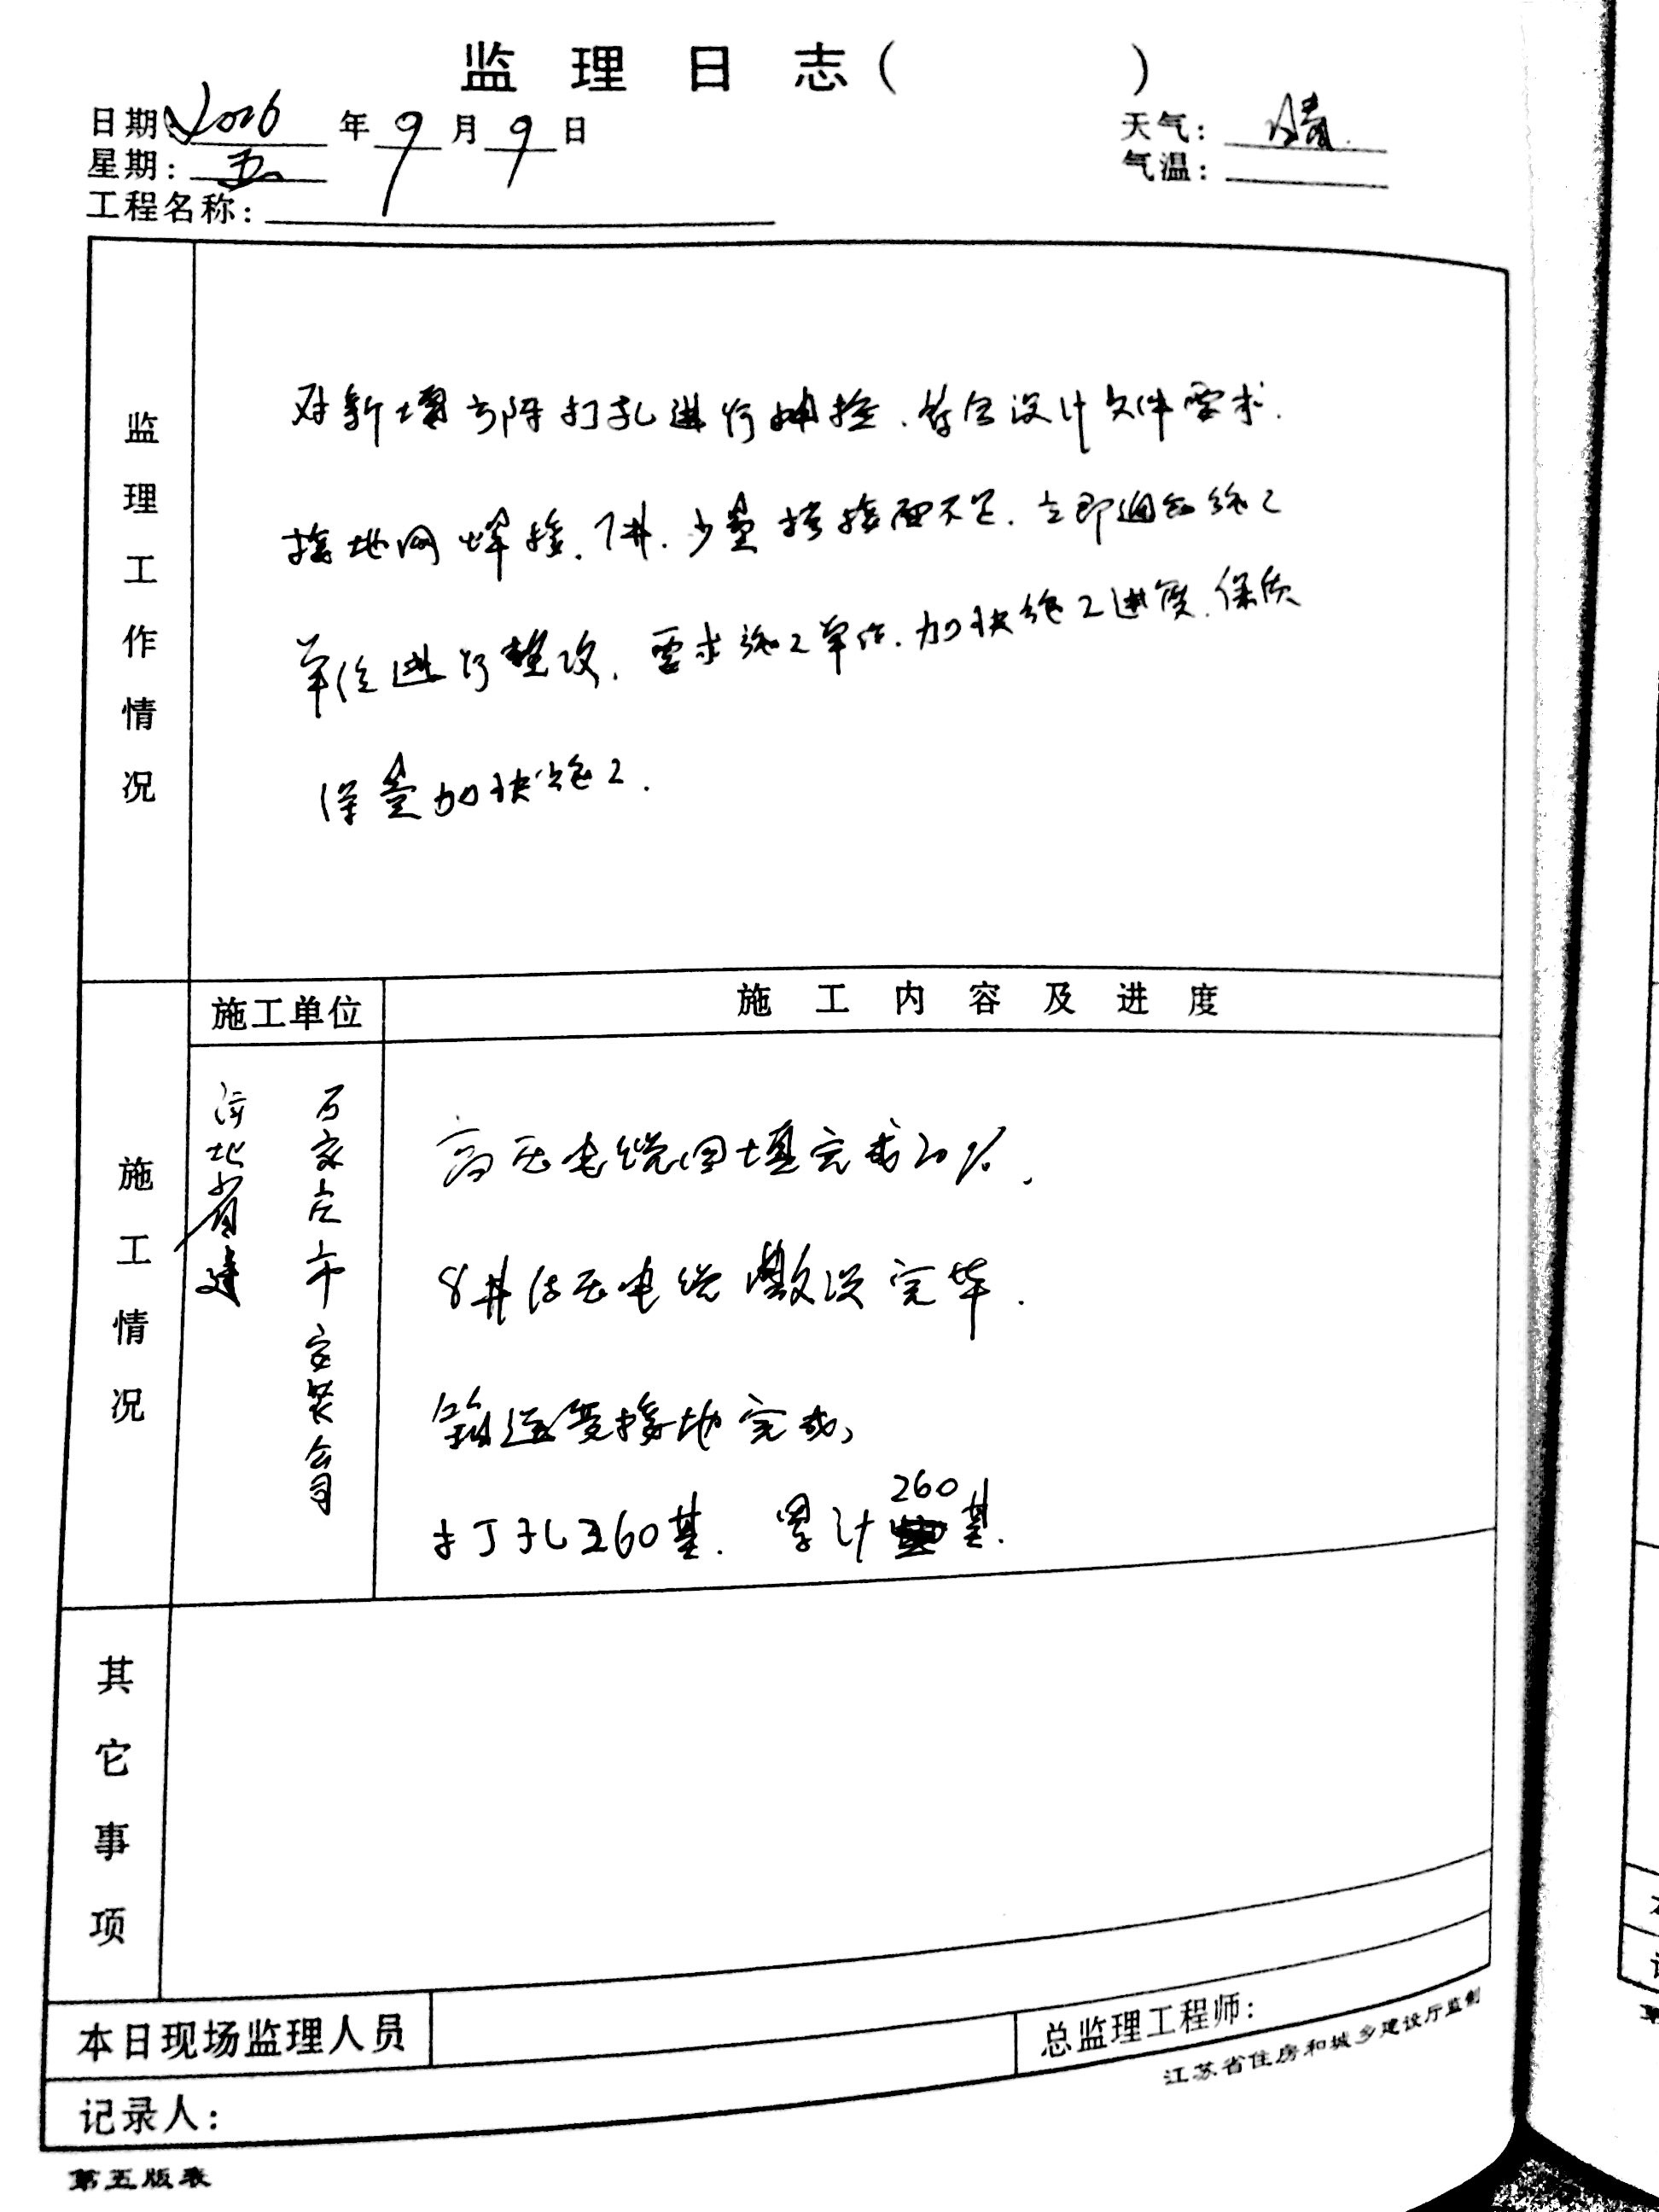 监理日志( )
日期: 2016 年 9 月 9 日
天气: 晴.
星期: 五
气温:
工程名称:
监理工作情况
对新增方阵打孔进行抽检、符合设计文件要求.
接地网焊接. 7#. 少量搭接面不足. 立即通知施工
单位进行整改. 要求施工单位. 加快施工进度. 保质
保量加快施工.
施工情况
施工单位
施工内容及进度
河北省建
石家庄市安装公司
高压电缆回填完成20%.
8#低压电缆敷设完毕.
箱逆变接地完成,
打孔260基. 累计260基.
其它事项
本日现场监理人员
总监理工程师:
记录人:
江苏省住房和城乡建设厅监制
第五版表